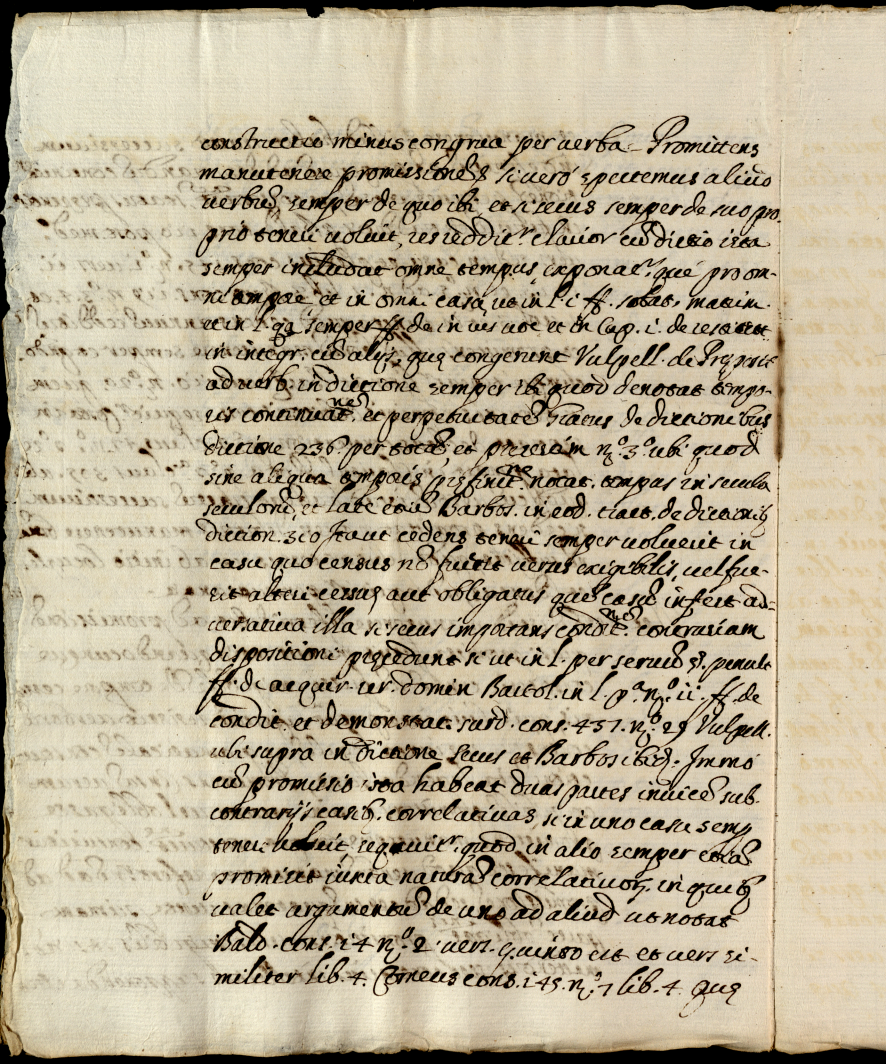 constructio minus congrua per uerba = Promittens
manutenere promissionẽ si uerò spectemus aliud
uerbũ, semper de quo ibi et si secus semper de suo pro.
prio teneri uoluit, res reddit.r clarior cũ dictio ista
semper includat omne tempus, exponat.r què pro om-
ni tempore et in omni casu, ut in l. i ff. solut. matrim.
et in l. semper ff. de in ius uoc et in Cap. i. de restit.
in integr. cũ alijs, quę congerunt Vulpell. de
ad uerb. in dictione semper ibi quòd denotat tempo-
ris continuat.nẽ et perpetuitatẽ de dictionibus
dictione 236 per totã, et precisim n.o 3.o ubi quod
sine aliqua temporis prefinit.ne notat tempus in secula
seculorũ, et latè etiã Barbos. in eod. tract. de dictionib
diction. 310 Itaut cedens teneri semper uoluerit in
casu quo census nõ fuerit uerus exigibilis, uel fue-
rit alteri cessus aut obligatus quẽ casũ infert ad-
uersatiua illa si secus importans condit.nẽ contrariam
dispositioni precedenti si ut in l. per seruũ §. penult
ff. de acquir. rer. domin Bartol. in l. p.a n.o ii. ff. de
condit. et demonstrat. surd. cons. 437. n.o 29 Vulpell.
ubi supra in dictione secus et Barbos ibid. Immò
cũ promissio ista habeat duas partes inuicẽ sub
contrarijs casib. correlatiuas, si in uno casu semp
teneri uoluit, sequit.r quod in alio semper etiã
promisit iuxta naturã correlatiuor. in quib
ualet argumentũ de uno ad aliud ut notat
Bald. cons. 14 n.o 2 uers. quinto est et uers si-
militer lib. 4. Corneus cons. 145. n.o 7 lib. 4. quę